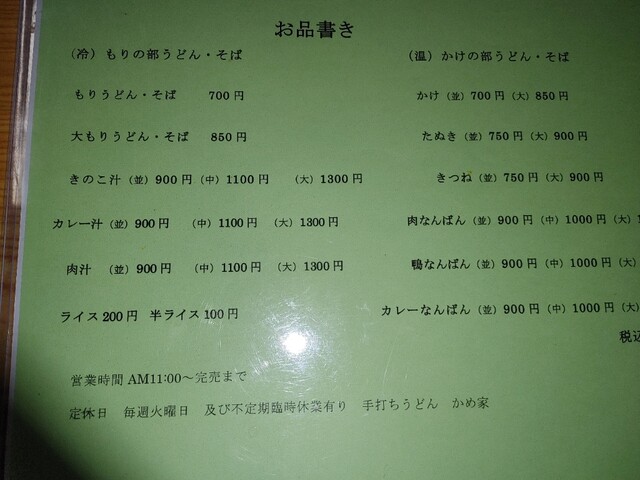 お品書き
(冷) もりの部うどん・そば
もりうどん・そば 700円
大もりうどん・そば 850円
きのこ汁 (並) 900円 (中) 1100円 (大) 1300円
カレー汁 (並) 900円 (中) 1100円 (大) 1300円
肉汁 (並) 900円 (中) 1100円 (大) 1300円
ライス200円 半ライス100円
(温) かけの部うどん・そば
かけ (並) 700円 (大) 850円
たぬき (並) 750円 (大) 900円
きつね (並) 750円 (大) 900円
肉なんばん (並) 900円 (中) 1000円 (大)
鴨なんばん (並) 900円 (中) 1000円 (大)
カレーなんばん (並) 900円 (中) 1000円 (大)
税込
営業時間 AM11:00～完売まで
定休日 毎週火曜日 及び不定期臨時休業有り 手打ちうどん かめ家